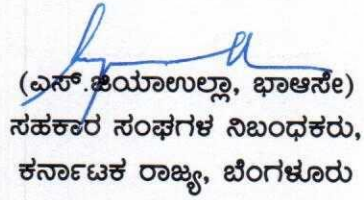 (ಎಸ್.ಜಿಯಾಉಲ್ಲಾ, ಭಾಆಸೇ)
ಸಹಕಾರ ಸಂಘಗಳ ನಿಬಂಧಕರು,
ಕರ್ನಾಟಕ ರಾಜ್ಯ, ಬೆಂಗಳೂರು